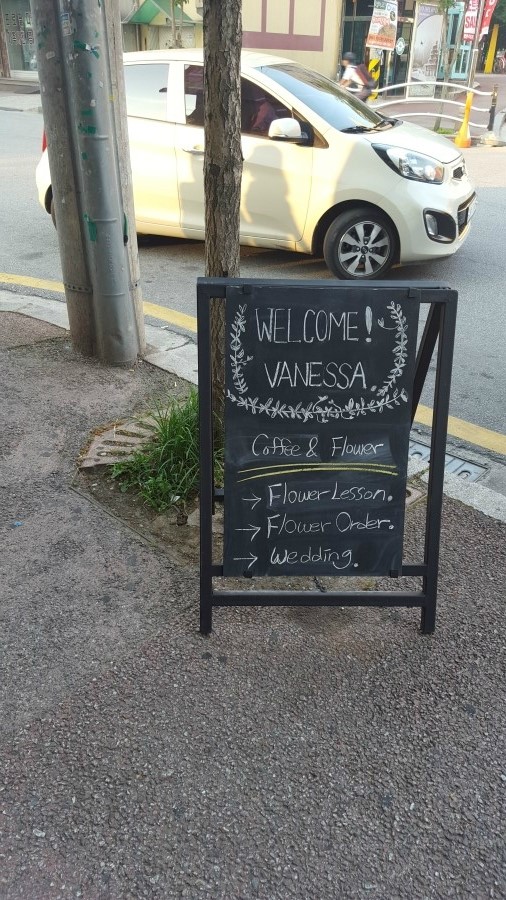 WELCOME!
VANESSA.
Coffee & Flower
→ Flower Lesson.
→ Flower Order.
→ Wedding.
SALE